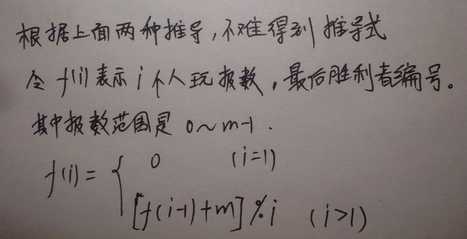 根据上面两种推导,不难得到推导式
令 f(i) 表示 i 个人玩报数,最后胜利者编号。
其中报数范围是 0~m-1.
f(i) = { 0 (i=1)
[f(i-1)+m]%i (i>1)